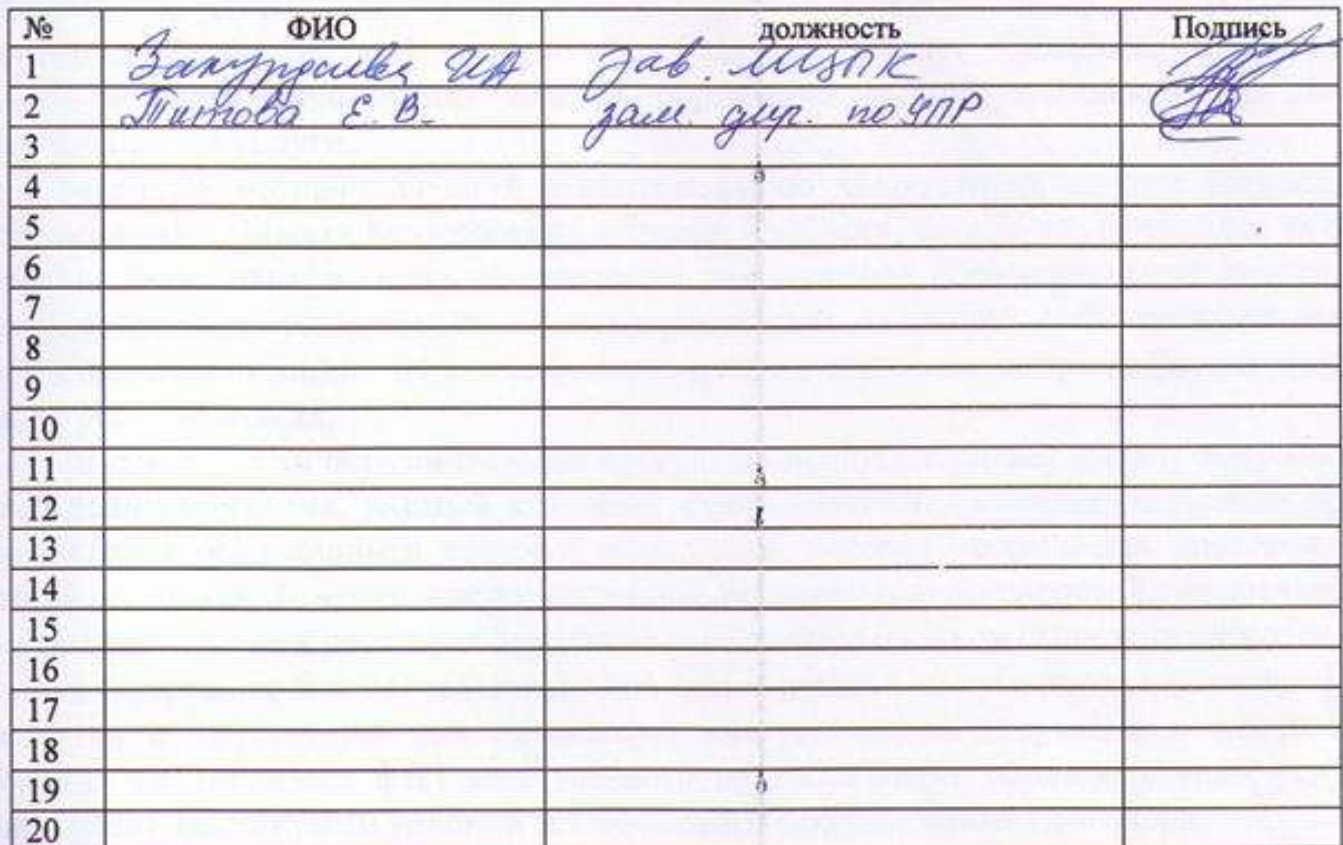 № ФИО должность Подпись
1 Закурдаева ИА Зав. МЦПК
2 Титова Е. В. зам. дир. по УПР
3
4
5
6
7
8
9
10
11
12
13
14
15
16
17
18
19
20